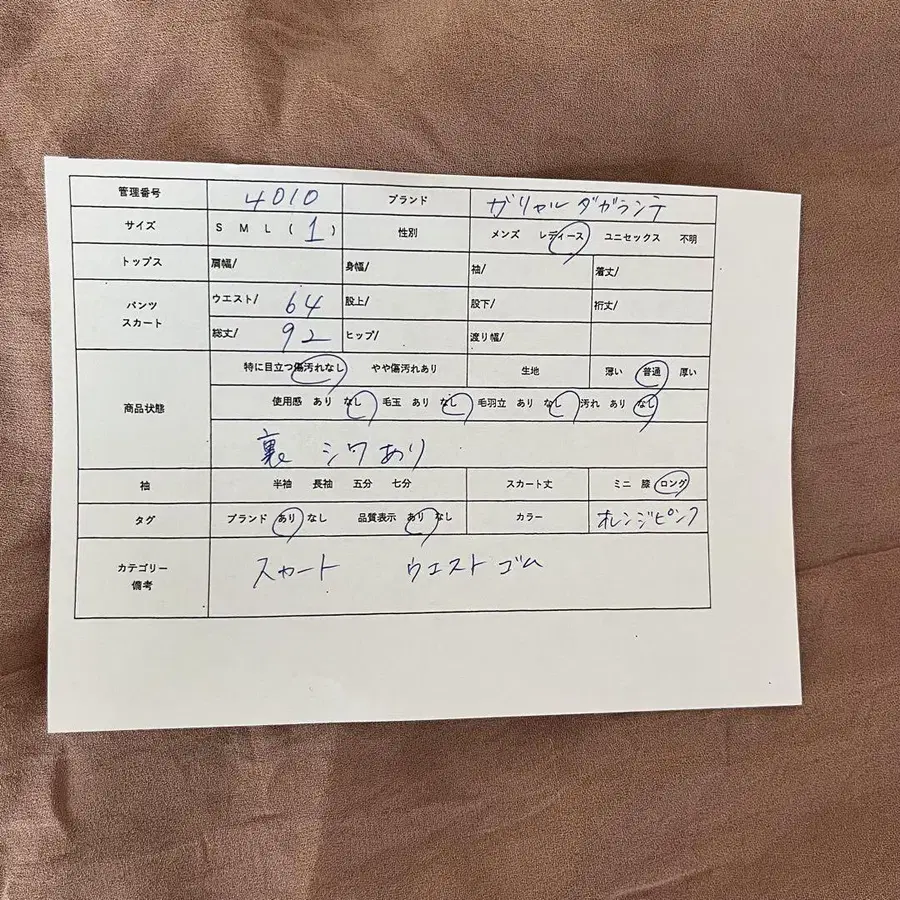 管理番号 4010 ブランド ガリャルダガランテ
サイズ S M L ( 1 ) 性別 メンズ レディース ユニセックス 不明
トップス 肩幅/ 身幅/ 袖/ 着丈/
パンツ スカート ウエスト/ 64 股上/ 股下/ 裄丈/
総丈/ 92 ヒップ/ 渡り幅/
商品状態 特に目立つ傷汚れなし やや傷汚れあり 生地 薄い 普通 厚い
使用感 あり なし 毛玉 あり なし 毛羽立 あり なし 汚れ あり なし
裏 シワあり
袖 半袖 長袖 五分 七分 スカート丈 ミニ 膝 ロング
タグ ブランド あり なし 品質表示 あり なし カラー オレンジピンク
カテゴリー 備考 スカート ウエストゴム